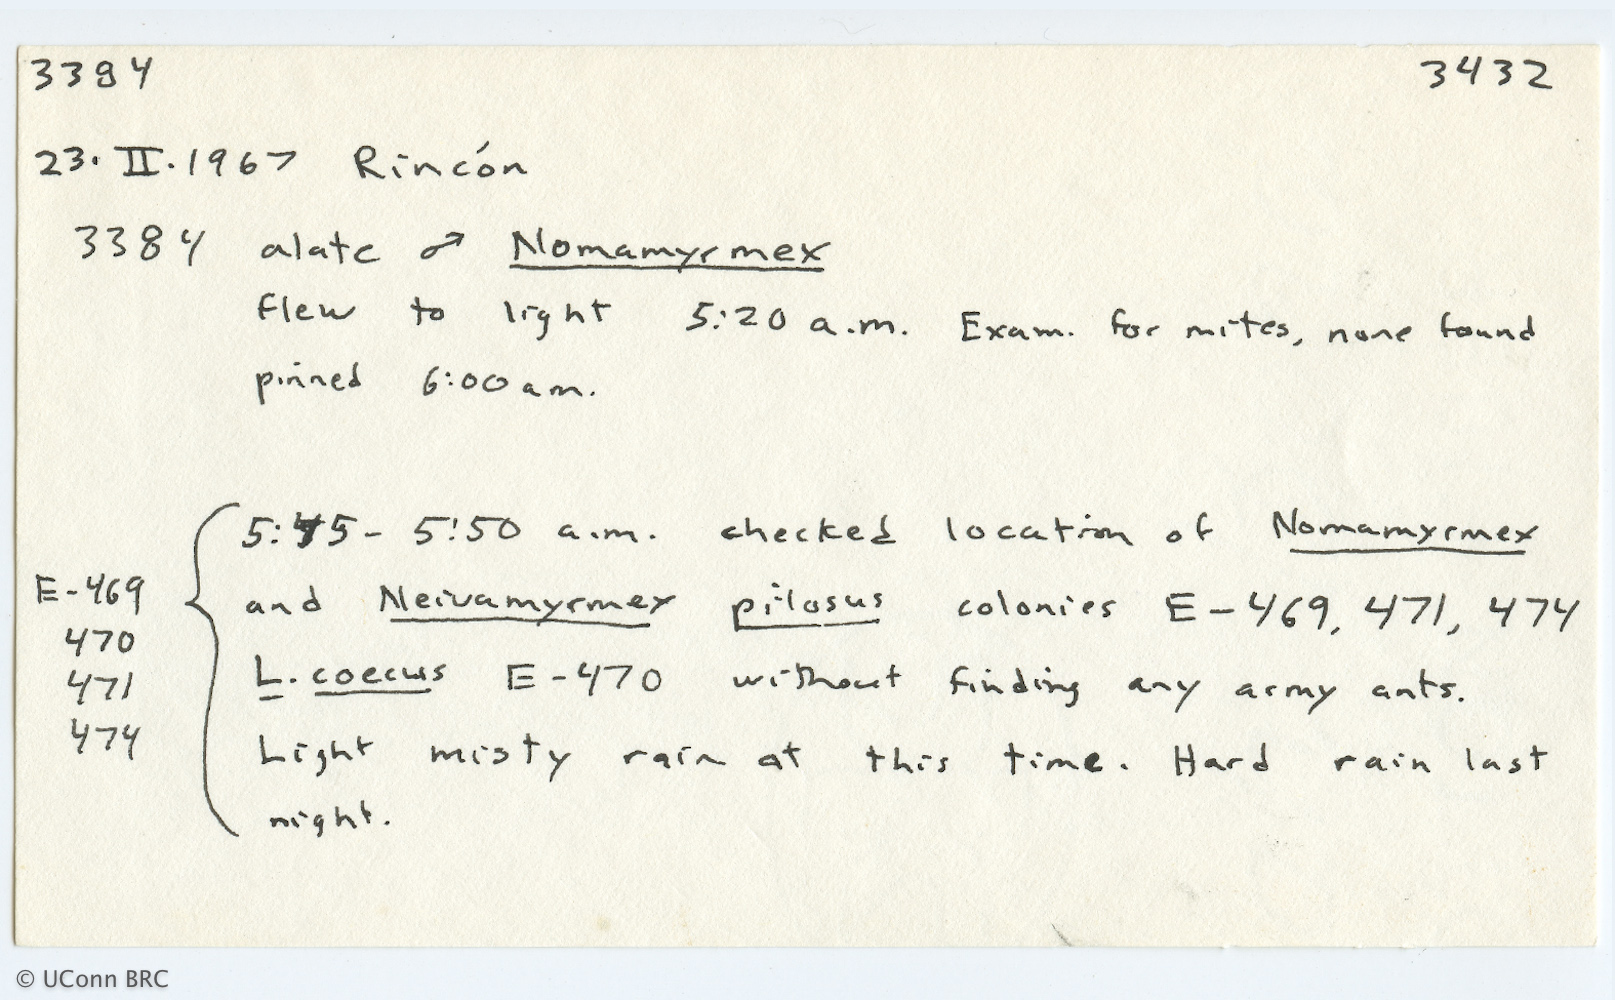 3384 3432
23.II.1967 Rincón
3384 alate ♂ Nomamyrmex
flew to light 5:20 a.m. Exam. for mites, none found
pinned 6:00 am.
5:45 - 5:50 a.m. checked location of Nomamyrmex
E-469 and Neivamyrmex pilosus colonies E-469, 471, 474
470
471 L. coecus E-470 without finding any army ants.
474 Light misty rain at this time. Hard rain last
night.
© UConn BRC